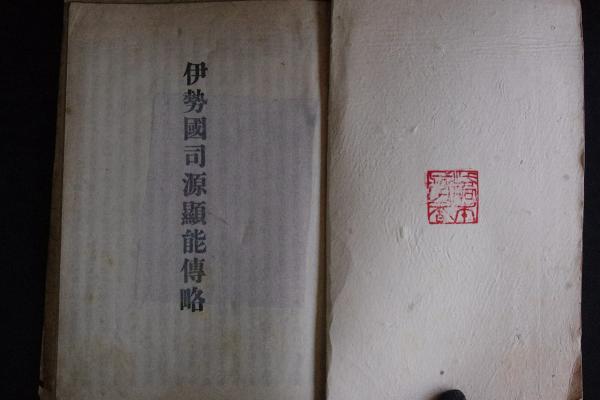 伊勢國司源顯能傳略